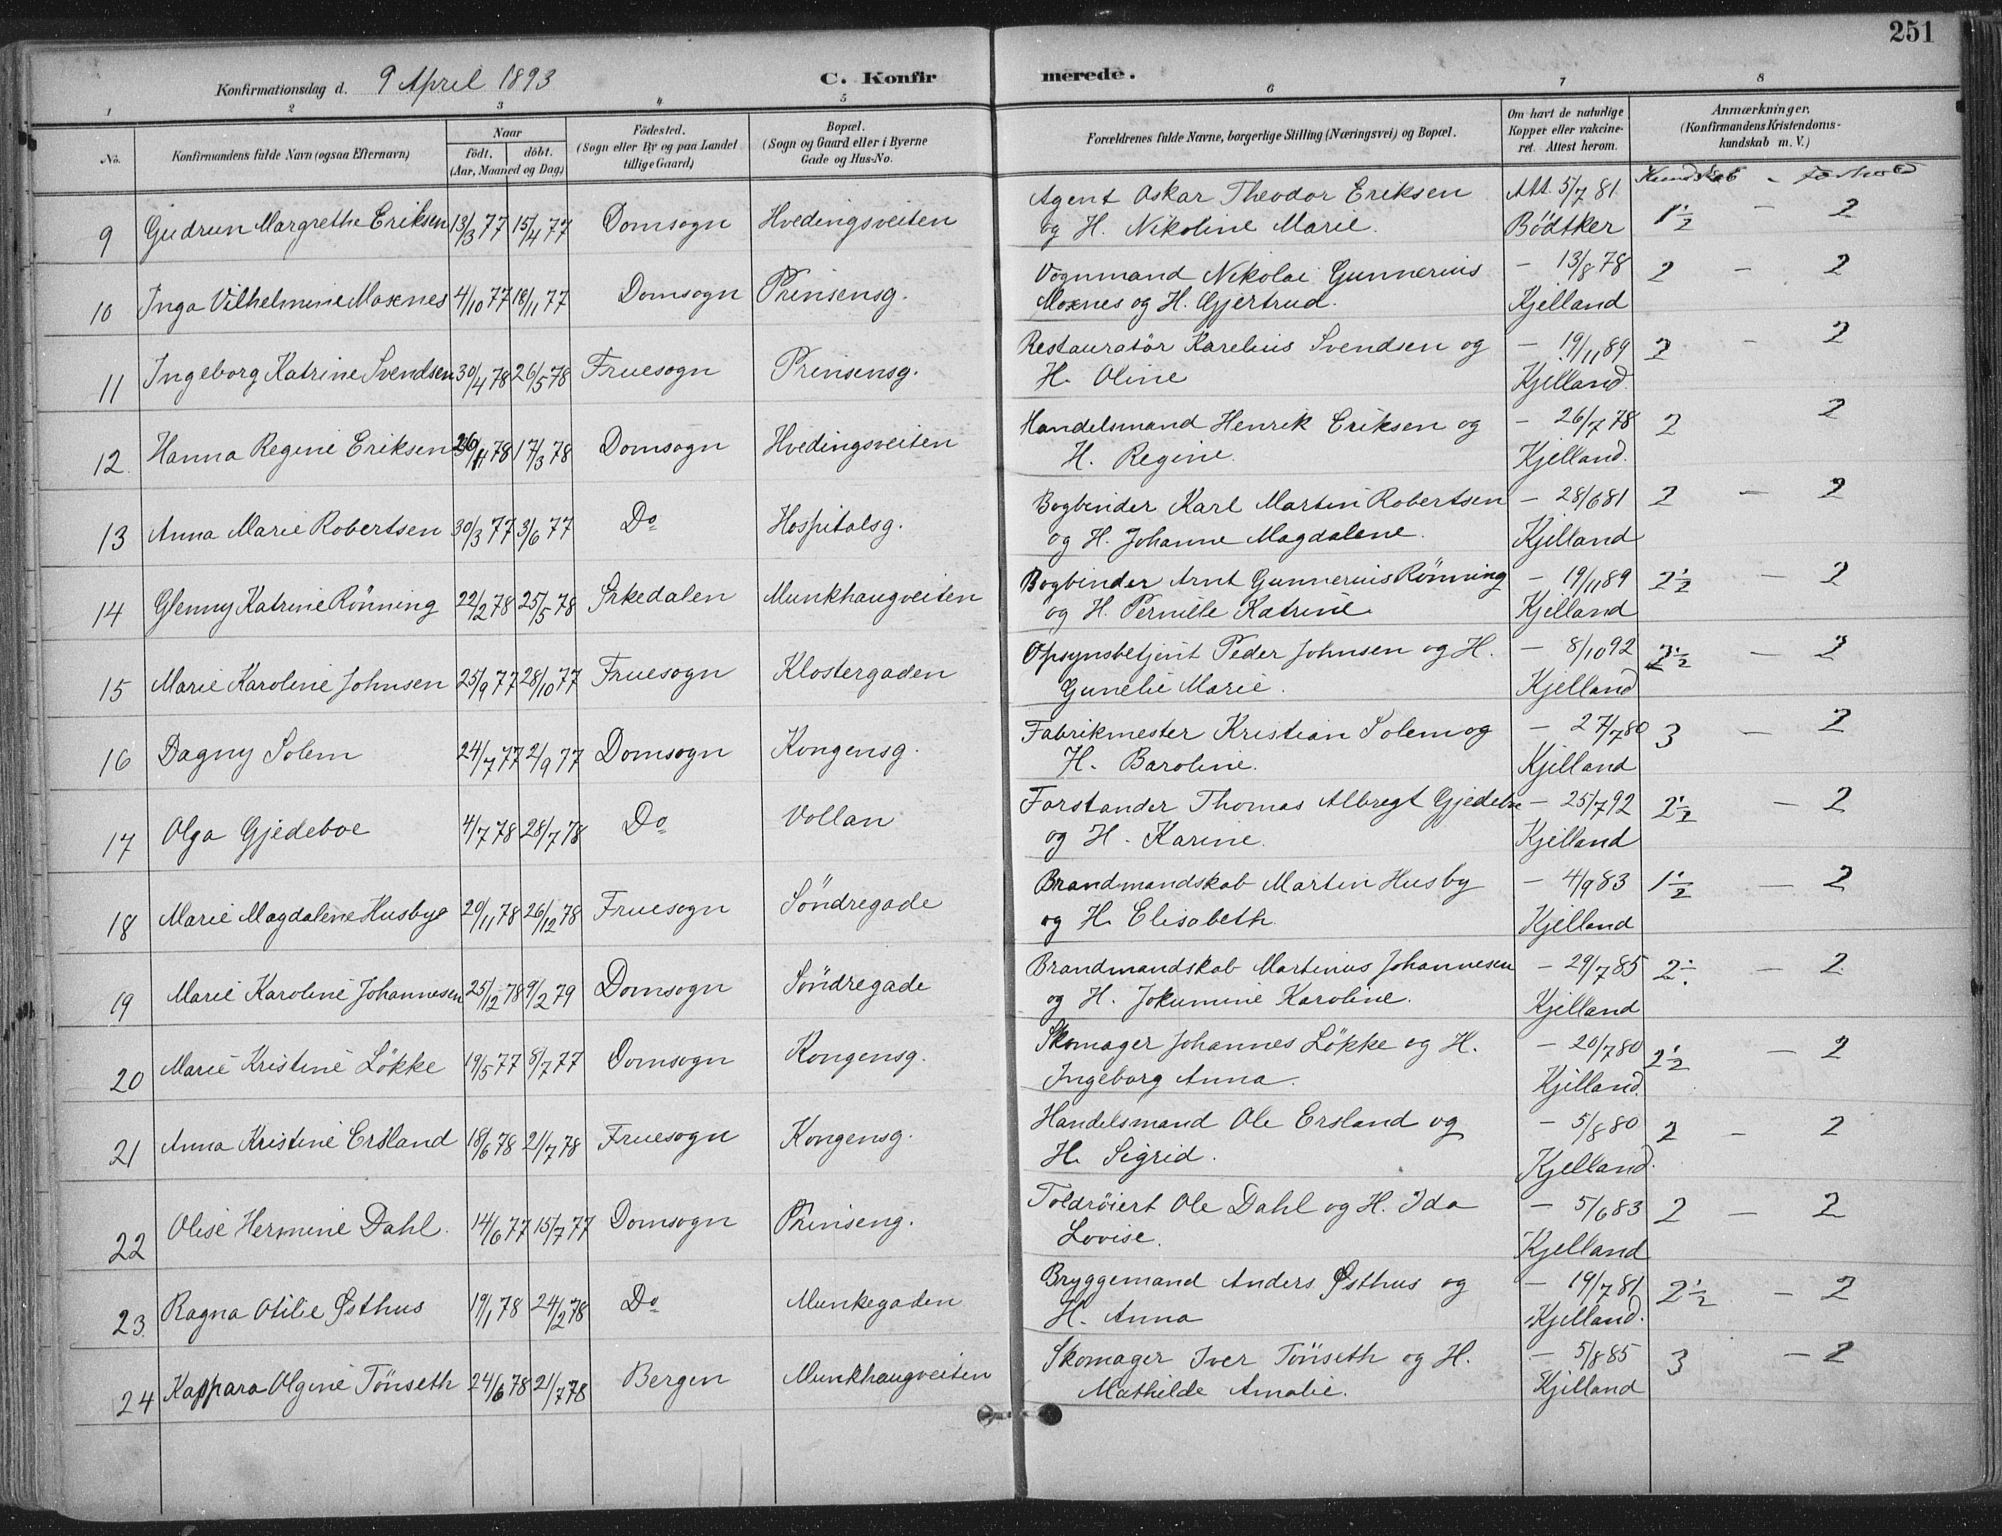 251
Konfirmationsdag d. 9 April 1893 C. Konfirmerede.
1 2 3 4 5 6 7 8
No. Konfirmandens fulde Navn (ogsaa Efternavn) Naar födt. döbt. (Aar, Maaned og Dag) Födested. (Sogn eller By og paa Landet tillige Gaard) Bopæl. (Sogn og Gaard eller i Byerne Gade og Hus-No. Forældrenes fulde Navne, borgerlige Stilling (Næringsvei) og Bopæl. Om havt de naturlige Kopper eller vakcineret. Attest herom. Anmærkninger. (Konfirmandens Kristendomskundskab m. V.)
Kundskab - Forhold
9 Gudrun Margrethe Eriksen 13/3 77 15/4 77 Domsogn Hvedingsveiten Agent Oskar Theodor Eriksen Att. 5/7 81 1 1/2 - 2
og H. Nikoline Marie. Bödtker
10 Inga Vilhelmine Moxnes 4/10 77 18/11 77 Domsogn Prinsensg. Vognmand Nikolai Gunnerius - 13/8 78 2 - 2
Moxnes og H. Gjertrud. Kjelland
11 Ingeborg Katrine Svendsen 30/4 78 26/5 78 Fruesogn Prinsensg. Restauratör Karelius Svendsen og - 19/11 89 2 - 2
H. Oline Kjelland.
12. Hanna Regine Eriksen 78 17/3 78 Domsogn Hvedingsveiten Handelsmand Henrik Eriksen og - 26/7 78 2 2
H. Regine. Kjelland.
13 Anna Marie Robertsen 30/3 77 3/6 77 Do Hospitalsg. Bogbinder Karl Martin Robertsen - 28/6 81 2 - 2
og H. Johanne Magdalene. Kjelland
14 Glenny Katrine Rönning 22/2 78 25/5 78 Orkedalen Munkhaugveiten Bogbinder Arnt Gunnerius Rönning - 19/11 89 2 1/2 - 2
og H. Pernille Katrine Kjelland
15 Marie Karoline Johnsen 25/9 77 28/10 77 Fruesogn Klostergaden Opsynsbetjent Peder Johnsen og H. - 8/10 92 2 1/2 - 2
Gunelie Marie. Kjelland
16 Dagny Solem 24/7 77 2/9 77 Domsogn Kongensg. Fabrikmester Kristian Solem og - 27/7 80 3 - 2
H. Baroline. Kjelland
17 Olga Gjedeboe 4/7 78 28/7 78 Do Vollan Forstander Thomas Albregt Gjedebo - 25/7 92 2 1/2 - 2
og H. Karine. Kjelland
18 Marie Magdalene Husbye 29/11 78 26/12 78 Fruesogn Söndregade Brandmandskab Martin Husby - 4/9 83 1 1/2 - 2
og H. Elisabeth Kjelland
19 Marie Karoline Johannesen 25/12 78 9/2 79 Domsogn Söndregade Brandmandskab Martinus Johannesen - 29/7 85 2 - 2
og H. Jokumine Karoline. Kjelland
20 Marie Kristine Lökke 19/5 77 8/7 77 Domsogn Kongensg. Skomager Johannes Lökke og H. - 20/7 80 2 1/2 - 2
Ingeborg Anna. Kjelland.
21 Anna Kristine Ersland 18/6 78 21/7 78 Fruesogn Kongensg. Handelsmand Ole Ersland og - 5/8 80 2 - 2
H. Sigrid. Kjelland.
22 Olise Hermine Dahl. 14/6 77 15/7 77 Domsogn Prinseng. Toldröiert Ole Dahl og H. Ida - 5/6 83 2 - 2
Lovise. Kjelland
23. Ragna Otilie Østhus 19/1 78 24/2 78 Do Munkegaden Bryggemand Anders Østhus og - 19/7 81 2 1/2 - 2
H. Anna Kjelland.
24 Kaspara Olgine Tönseth 24/6 78 21/7 78 Bergen Munkhaugveiten Skomager Iver Tönseth og H. - 5/8 85 3 - 2
Mathilde Amalie. Kjelland